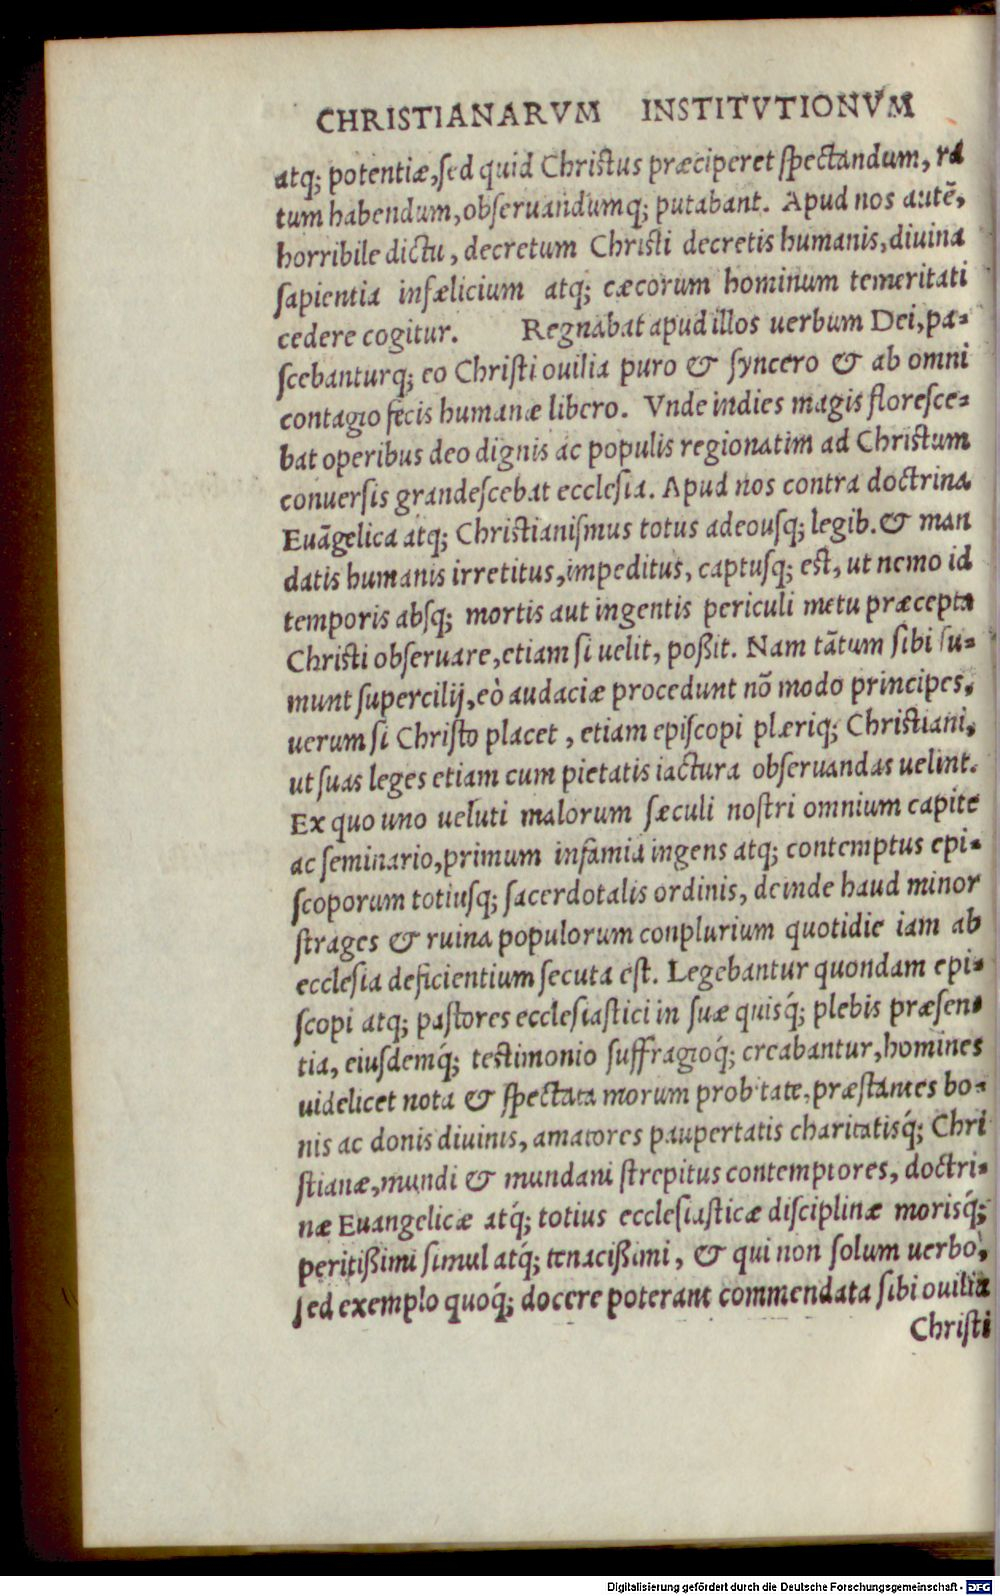 CHRISTIANARVM INSTITVTIONVM
atq; potentiæ, sed quid Christus præciperet spectandum, ra
tum habendum, obseruandumq; putabant. Apud nos autē,
horribile dictu, decretum Christi decretis humanis, diuina
sapientia infælicium atq; cæcorum hominum temeritati
cedere cogitur. Regnabat apud illos uerbum Dei, pa-
scebanturq; eo Christi ouilia puro & syncero & ab omni
contagio fecis humanæ libero. Vnde indies magis floresce-
bat operibus deo dignis ac populis regionatim ad Christum
conuersis grandescebat ecclesia. Apud nos contra doctrina
Euāgelica atq; Christianismus totus adeousq; legib. & man
datis humanis irretitus, impeditus, captusq; est, ut nemo id
temporis absq; mortis aut ingentis periculi metu præcepta
Christi obseruare, etiam si uelit, poßit. Nam tātum sibi su-
munt supercilij, eò audaciæ procedunt nō modo principes,
uerum si Christo placet, etiam episcopi plæriq; Christiani,
ut suas leges etiam cum pietatis iactura obseruandas uelint.
Ex quo uno ueluti malorum sæculi nostri omnium capite
ac seminario, primum infamia ingens atq; contemptus epi-
scoporum totiusq; sacerdotalis ordinis, deinde haud minor
strages & ruina populorum conplurium quotidie iam ab
ecclesia deficientium secuta est. Legebantur quondam epi-
scopi atq; pastores ecclesiastici in suæ quisq́; plebis præsen-
tia, eiusdemq́; testimonio suffragioq́; creabantur, homines
uidelicet nota & spectata morum probitate, præstantes bo-
nis ac donis diuinis, amatores paupertatis charitatisq́; Chri
stianæ, mundi & mundani strepitus contemptores, doctri-
næ Euangelicæ atq́; totius ecclesiasticæ disciplinæ morisq́;
peritißimi simul atq́; tenacißimi, & qui non solum uerbo,
sed exemplo quoq́; docere poterant commendata sibi ouilia
Christi
Digitalisierung gefördert durch die Deutsche Forschungsgemeinschaft - DFG